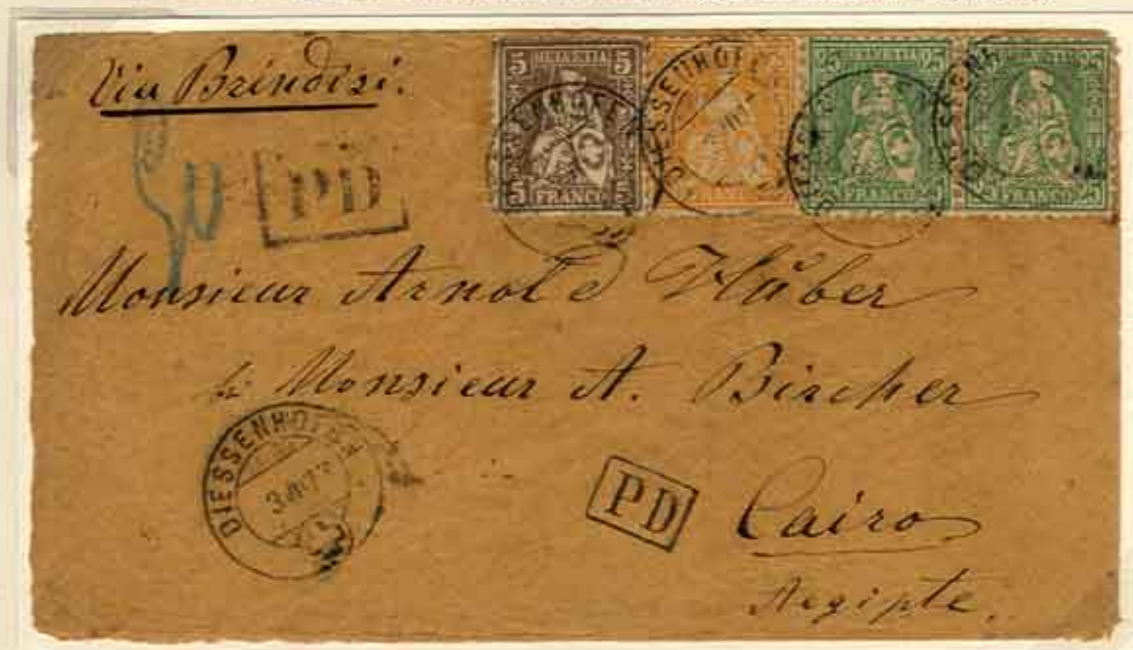 Via Brindisi.
5 HELVETIA 5
5 FRANCO 5
DIESSENHOFEN
25 HELVETIA 25
25 FRANCO 25
HELVETIA
25 FRANCO 25
PD
Monsieur Arnold Hüber
Monsieur A. Bircher
DIESSENHOFEN
PD
Cairo
Aegipte.